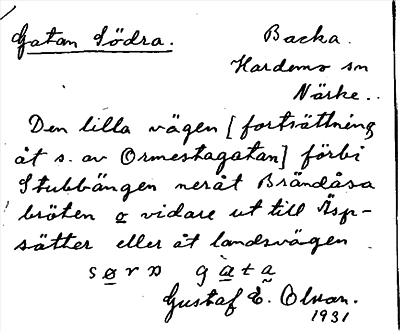 Gatan Södra.
Backa.
Hardemo sn
Närke..
Den lilla vägen [fortsättning
åt s. av Ormestagatan] förbi
Stubbängen neråt Brändåsa
bröten o vidare ut till Äsp-
sätter eller åt landsvägen.
gata
Gustaf E. Olson.
1931